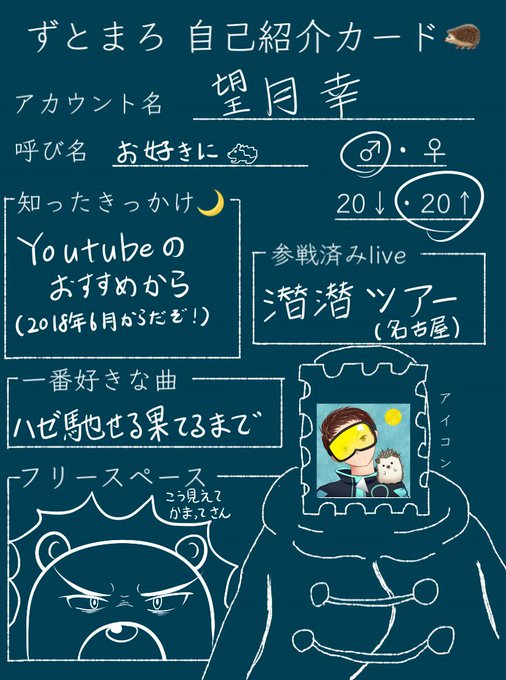 ずとまろ 自己紹介カード🦔
アカウント名 望月幸
呼び名 お好きに
♂・♀
20↓・20↑
知ったきっかけ🌙
Youtubeの
おすすめから
(2018年6月からだぞ!)
参戦済みlive
潜潜ツアー
(名古屋)
一番好きな曲
ハゼ馳せる果てるまで
アイコン
フリースペース
こう見えて
かまってさん